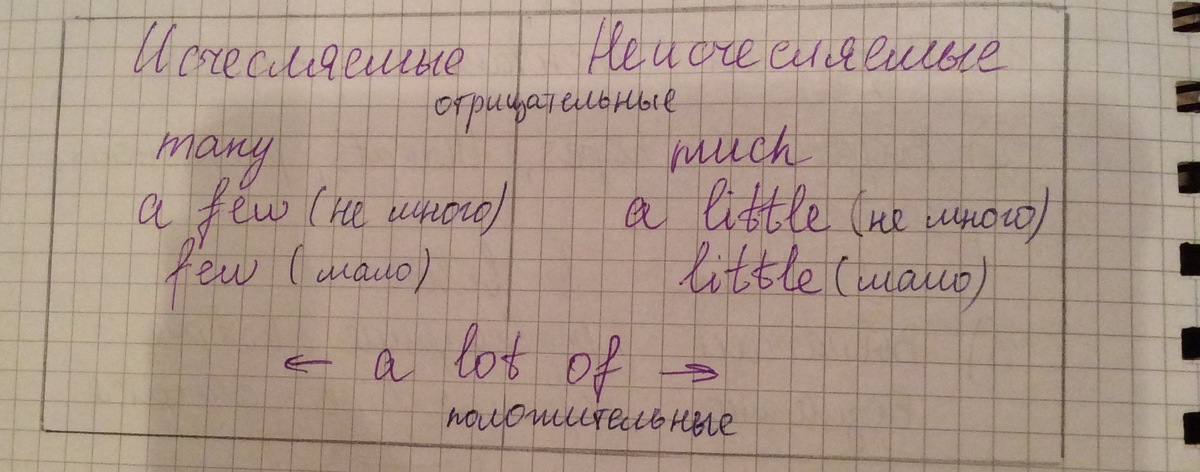 Исчесляемые Неисчесляемые
отрицательные
many much
a few (не много) a little (не много)
few (мало) little (мало)
← a lot of →
положительные